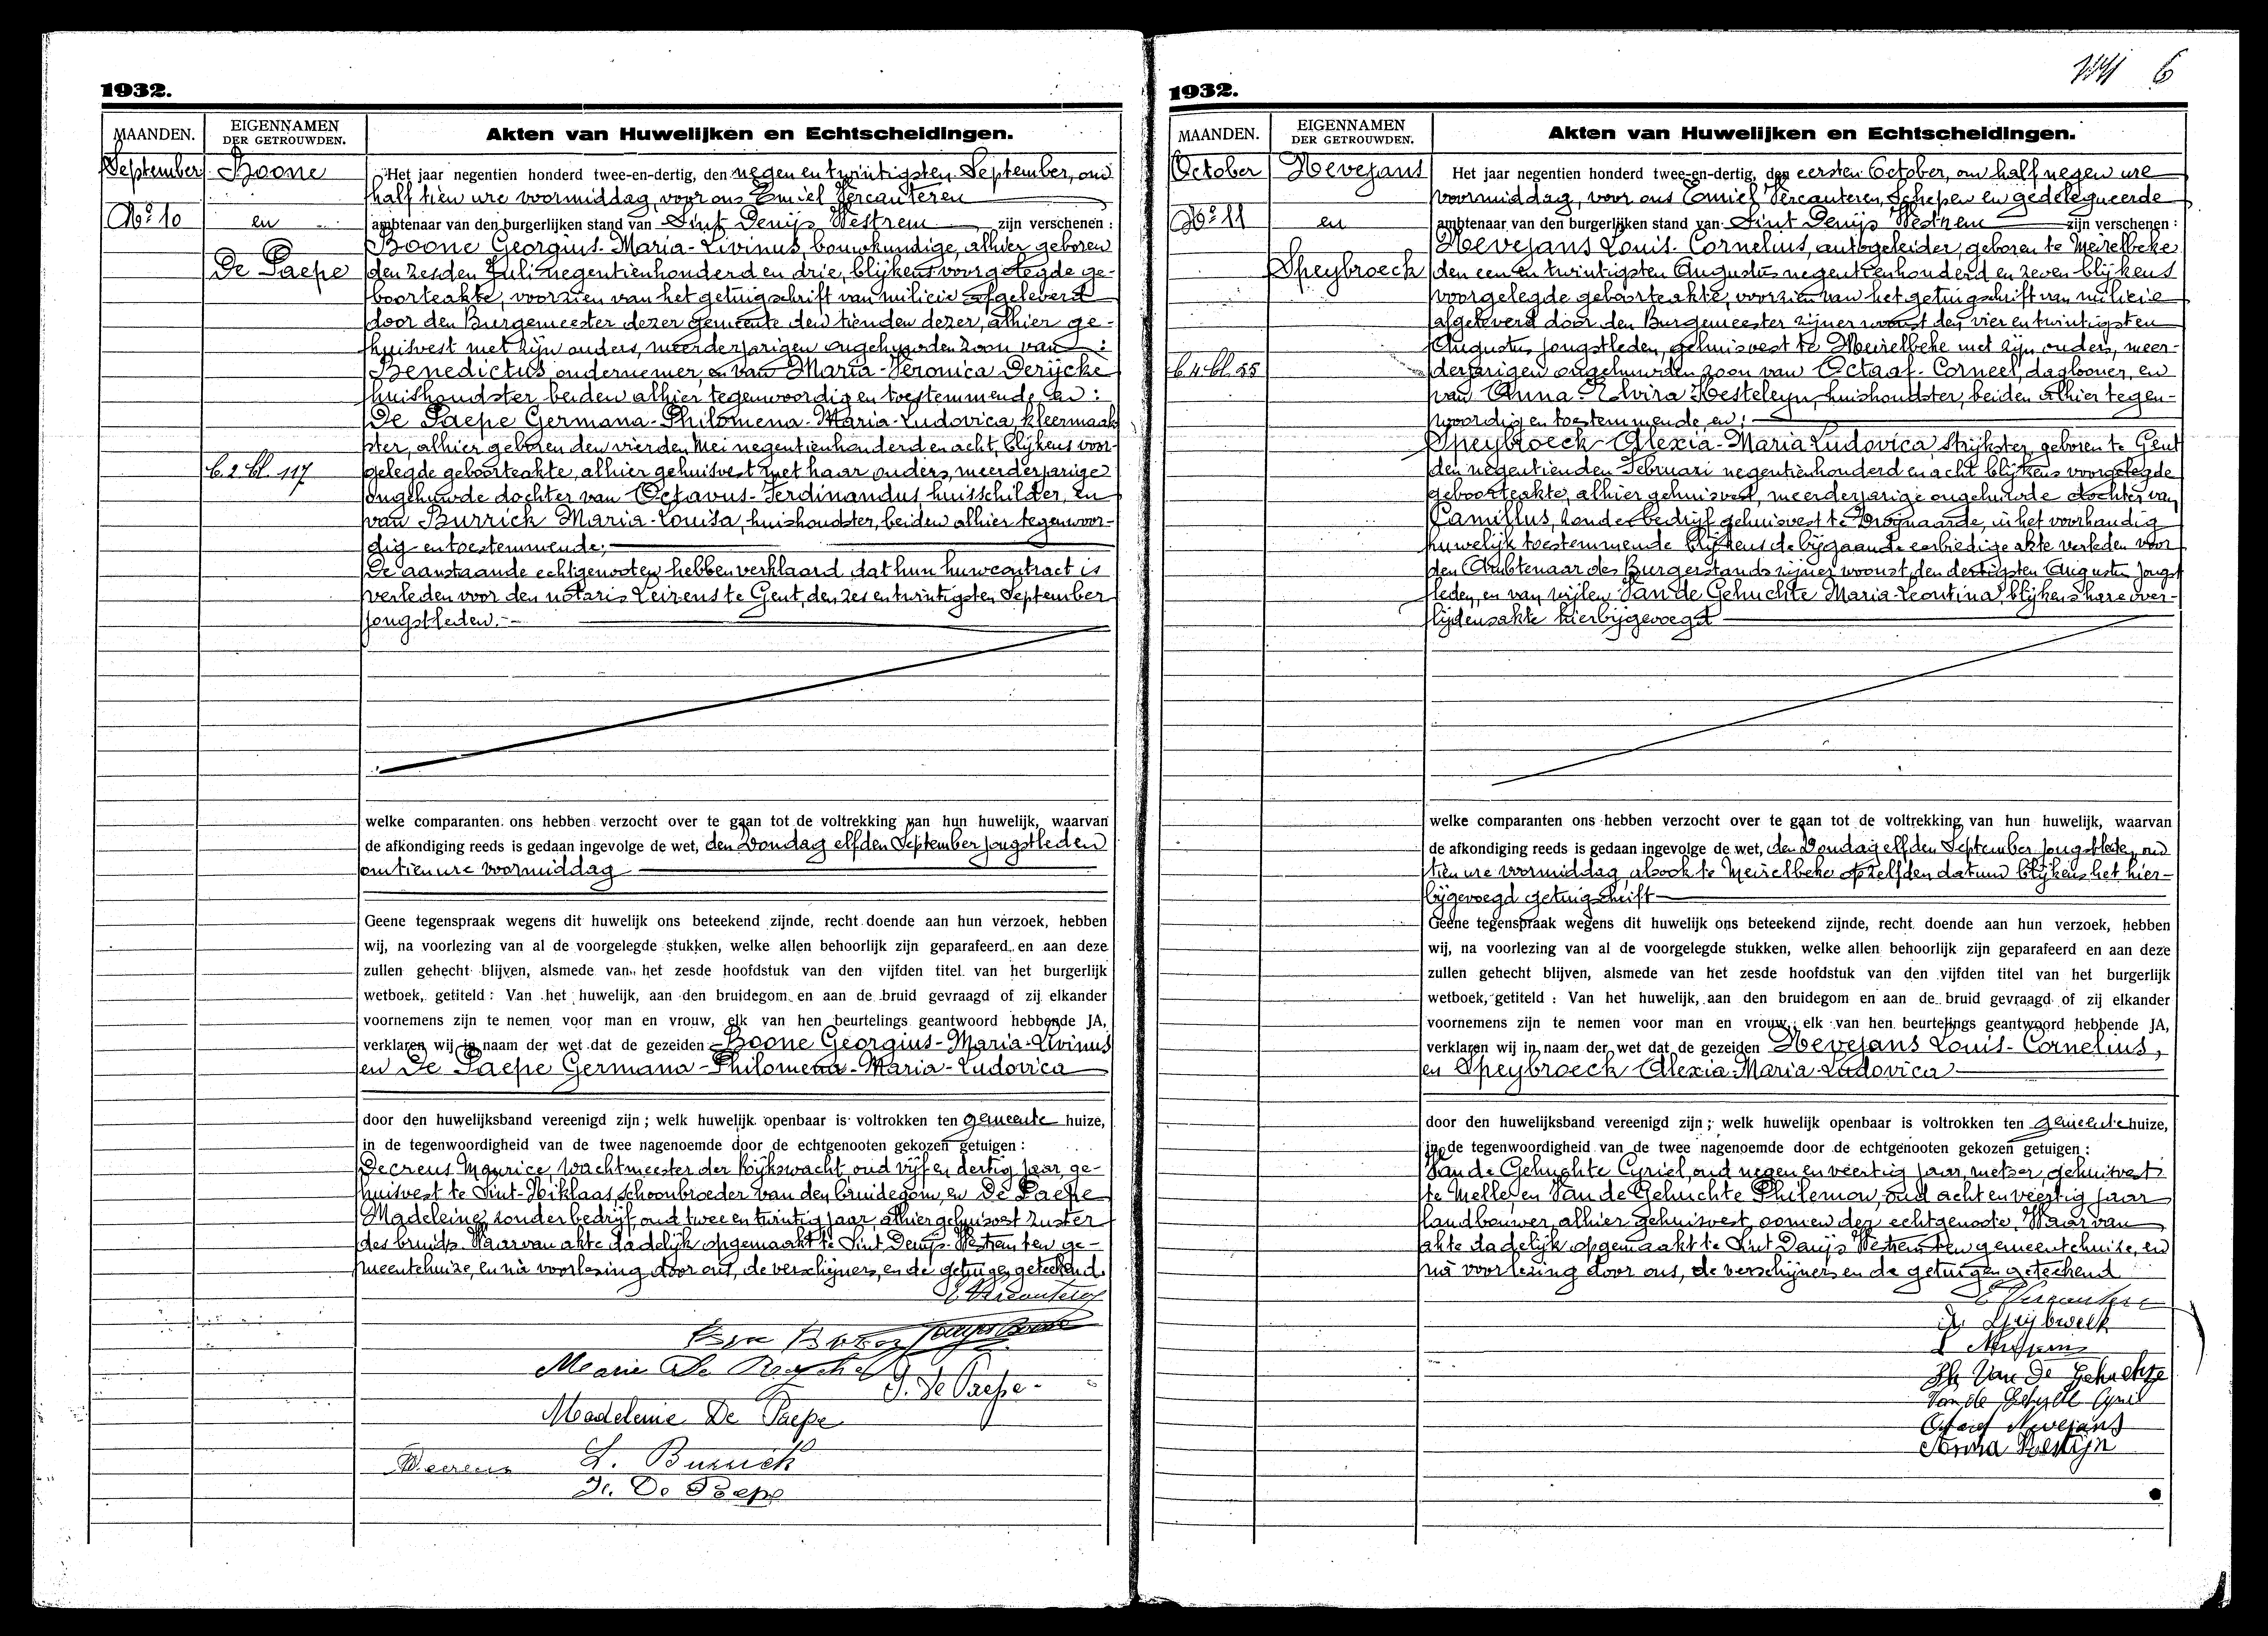 1932.
MAANDEN.
EIGENNAMEN
DER GETROUWDEN.
Akten van Huwelijken en Echtscheidingen.
September
Boone
No 10
en
De Paepe
b. 2. bl. 117
Het jaar negentien honderd twee-en-dertig, den negen en twintigsten September, om
half tien ure voormiddag, voor ons Emiel Vercauteren
ambtenaar van den burgerlijken stand van Sint Denijs Westrem zijn verschenen :
Boone Georgius-Maria-Livinus, bouwkundige, alhier geboren
den zesden Juli negentienhonderd en drie, blijkens voorgelegde ge-
boorteakte, voorzien van het getuigschrift van milicie afgeleverd
door den Burgemeester dezer gemeente den tienden dezer, alhier ge-
huisvest met zijn ouders, meerderjarigen ongehuwden zoon van :
Benedictus, ondernemer, en van Maria-Veronica Derijcke
huishoudster beiden alhier tegenwoordig en toestemmende, En :
De Paepe Germana-Philomena-Maria-Ludovica, kleermaak-
ster, alhier geboren den vierden Mei negentienhonderd en acht, blijkens voor-
gelegde geboorteakte, alhier gehuisvest met haar ouders, meerderjarige
ongehuwde dochter van Octavus-Ferdinandus, huisschilder, en
van Burrick Maria-Louisa, huishoudster, beiden alhier tegenwoor-
dig en toestemmende;
De aanstaande echtgenooten hebben verklaard dat hun huwcontract is
verleden voor den notaris Leirens te Gent, den zes en twintigsten September
jongstleden.-
welke comparanten ons hebben verzocht over te gaan tot de voltrekking van hun huwelijk, waarvan
de afkondiging reeds is gedaan ingevolge de wet, den Zondag elfden September jongstleden
om tien ure voormiddag
Geene tegenspraak wegens dit huwelijk ons beteekend zijnde, recht doende aan hun verzoek, hebben
wij, na voorlezing van al de voorgelegde stukken, welke allen behoorlijk zijn geparafeerd en aan deze
zullen gehecht blijven, alsmede van het zesde hoofdstuk van den vijfden titel van het burgerlijk
wetboek, getiteld : Van het huwelijk, aan den bruidegom en aan de bruid gevraagd of zij elkander
voornemens zijn te nemen voor man en vrouw, elk van hen beurtelings geantwoord hebbende JA,
verklaren wij in naam der wet dat de gezeiden Boone Georgius-Maria-Livinus
en De Paepe Germana-Philomena-Maria-Ludovica
door den huwelijksband vereenigd zijn ; welk huwelijk openbaar is voltrokken ten gemeente huize,
in de tegenwoordigheid van de twee nagenoemde door de echtgenooten gekozen getuigen :
Decreus Maurice, wachtmeester der Rijkswacht, oud vijf en dertig jaar, ge-
huisvest te Sint-Niklaas, schoonbroeder van den bruidegom, en De Paepe
Madeleine, zonder bedrijf, oud twee en twintig jaar, alhier gehuisvest zuster
des bruids. Waarvan akte dadelijk opgemaakt te Sint Denijs-Westrem ten ge-
meentehuize, en na voorlezing door ons, de verschijners, en de getuigen geteekend.
E Vercauteren
Marie De Rycke
G. De Paepe-
Madeleine De Paepe
Decreus
L. Burrick
De Paepe
6
1932.
MAANDEN.
EIGENNAMEN
DER GETROUWDEN.
Akten van Huwelijken en Echtscheidingen.
October
Nevejans
No 11
en
Speybroeck
b. 4. bl. 55
Het jaar negentien honderd twee-en-dertig, den eersten October, om half negen ure
voormiddag, voor ons Emiel Vercauteren, Schepen en gedelegueerde
ambtenaar van den burgerlijken stand van Sint Denijs Westrem zijn verschenen :
Nevejans Louis-Cornelius, autogeleider, geboren te Meirelbeke
den een en twintigsten Augustus negentienhonderd en zeven blijkens
voorgelegde geboorteakte, voorzien van het getuigschrift van milicie
afgeleverd door den Burgemeester zijner woonst den vier en twintigsten
Augustus jongstleden, gehuisvest te Meirelbeke met zijn ouders, meer-
derjarigen ongehuwden zoon van Octaaf-Corneel, daglooner, en
van Anna-Elvira Hesteleyn, huishoudster, beiden alhier tegen-
woordig en toestemmende, en :
Speybroeck Alexia-Maria Ludovica, strijkster, geboren te Gent
den negentienden Februari negentienhonderd en acht blijkens voorgelegde
geboorteakte, alhier gehuisvest, meerderjarige ongehuwde dochter van
Camillus, zonder bedrijf gehuisvest te Zwijnaarde, in het voorhandig
huwelijk toestemmende blijkens de bijgaande eerbiedige akte verleden voor
den Ambtenaar des Burgerstands zijner woonst, den dertigsten Augustus jongst
leden, en van wijlen Van de Gehuchte Maria-Leontina, blijkens hare over-
lijdensakte hierbijgevoegd
welke comparanten ons hebben verzocht over te gaan tot de voltrekking van hun huwelijk, waarvan
de afkondiging reeds is gedaan ingevolge de wet, den Zondag elfden September jongstleden, om
tien ure voormiddag, alsook te Meirelbeke op zelfden datum blijkens het hier-
bijgevoegd getuigschrift
Geene tegenspraak wegens dit huwelijk ons beteekend zijnde, recht doende aan hun verzoek, hebben
wij, na voorlezing van al de voorgelegde stukken, welke allen behoorlijk zijn geparafeerd en aan deze
zullen gehecht blijven, alsmede van het zesde hoofdstuk van den vijfden titel van het burgerlijk
wetboek, getiteld : Van het huwelijk, aan den bruidegom en aan de bruid gevraagd of zij elkander
voornemens zijn te nemen voor man en vrouw, elk van hen beurtelings geantwoord hebbende JA,
verklaren wij in naam der wet dat de gezeiden Nevejans Louis-Cornelius,
en Speybroeck Alexia-Maria-Ludovica
door den huwelijksband vereenigd zijn ; welk huwelijk openbaar is voltrokken ten gemeente huize,
in de tegenwoordigheid van de twee nagenoemde door de echtgenooten gekozen getuigen :
Van de Gehuchte Cyriel, oud negen en veertig jaar, metser, gehuisvest
te Melle, en Van de Gehuchte Philemon, oud acht en veertig jaar
landbouwer, alhier gehuisvest, oomen der echtgenoote. Waarvan
akte dadelijk opgemaakt te Sint Denijs Westrem ten gemeentehuize, en
na voorlezing door ons, de verschijners en de getuigen geteekend
E Vercauteren
A. Speybroeck
L Nevejans
Ph Van De Gehuchte
Van de Gehuchte Cyriel
Octaaf Nevejans